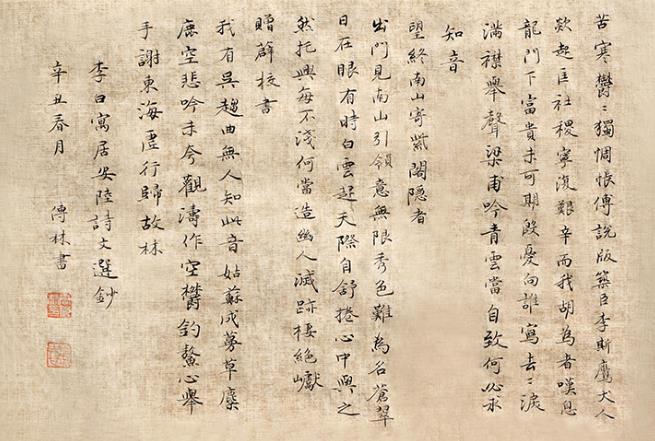 苦寒欝〻獨惆悵傅說版築臣李斯鷹犬人
欻起匡社稷寧復艱辛而我胡為者嘆息
龍門下富貴未可期殷憂向誰寫去〻淚
滿襟舉聲梁甫吟青雲當自致何必求
知音
望終南山寄紫閣隱者
出門見南山引領意無限秀色難為名蒼翠
日在眼有時白雲起天際自舒捲心中與之
然托興每不淺何當造幽人滅跡棲絕巘
贈薛校書
我有吳趨曲無人知此音姑蘇成蔓草麋
鹿空悲吟未夸觀濤作空欝釣鰲心舉
手謝東海虛行歸故林
李白寓居安陸詩文選鈔
辛丑春月 傳林書